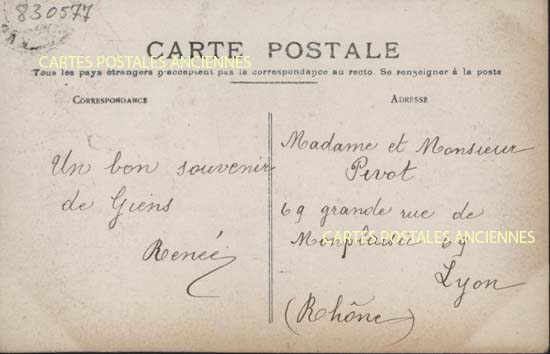 830577
CARTE POSTALE
CARTES POSTALES ANCIENNES
Tous les pays étrangers n'acceptent pas la correspondance au recto. Se renseigner à la poste
CORRESPONDANCE
Un bon souvenir
de Giens
Renée
ADRESSE
Madame et Monsieur
Pivot
69 grande rue de
Monplaisir 69
CARTES POSTALES ANCIENNES
Lyon
(Rhône)